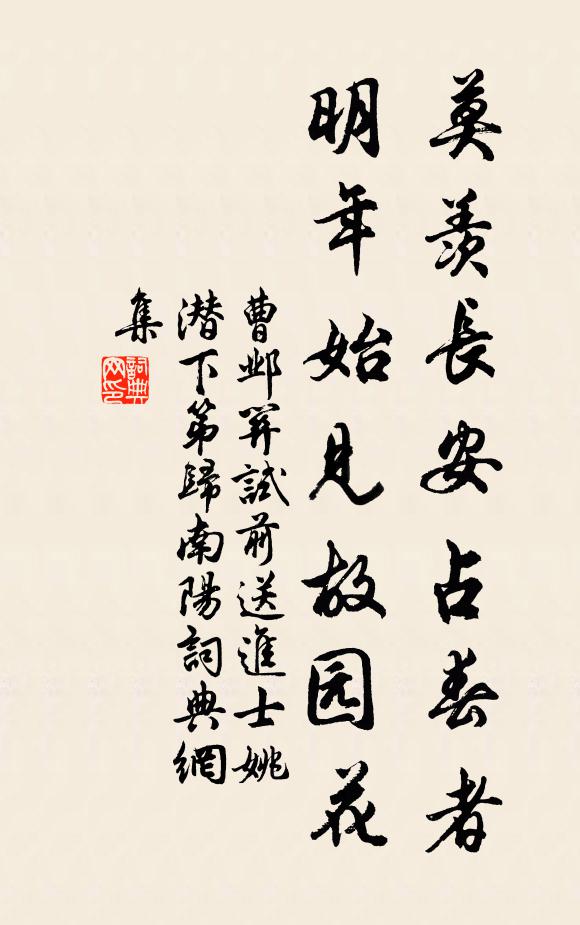 莫羡長安占春者
明年始見故园花
曹邺關試前送進士姚
潜下第歸南陽詞典網
集
詞典
网印